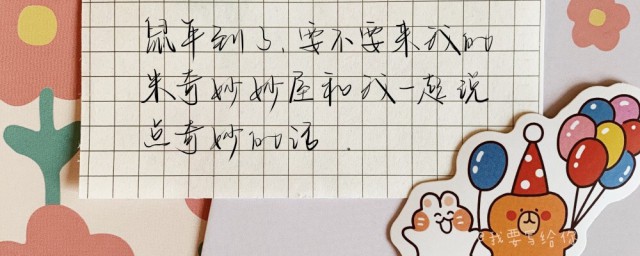 鼠年到了，要不要来我的
米奇妙妙屋和我一起说
点奇妙的话．
我要写给你